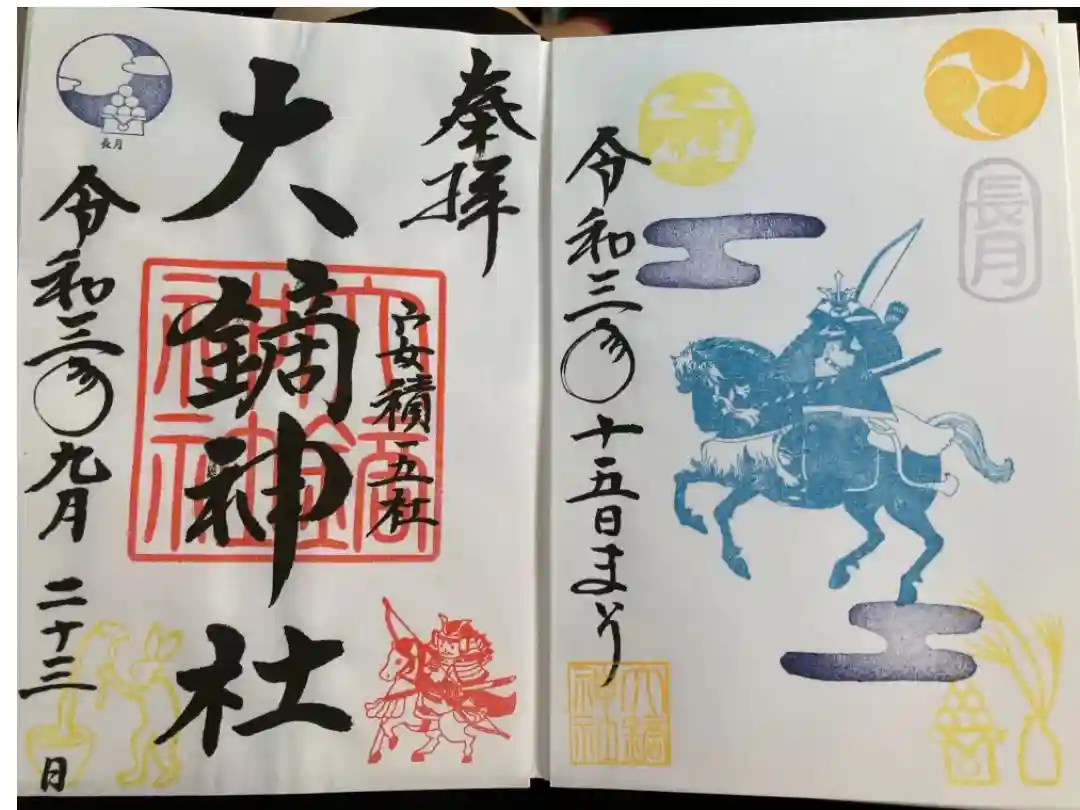 長月
令和三年 十五日まいり
大鏑神社
奉拝
安積五社
大鏑神社
令和三年九月二十三日
長月